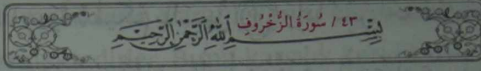 ٤٣ / سُورَةُ الزُّخْرُوفِ
بِسْمِ اللَّهِ الرَّحْمَنِ الرَّحِيمِ